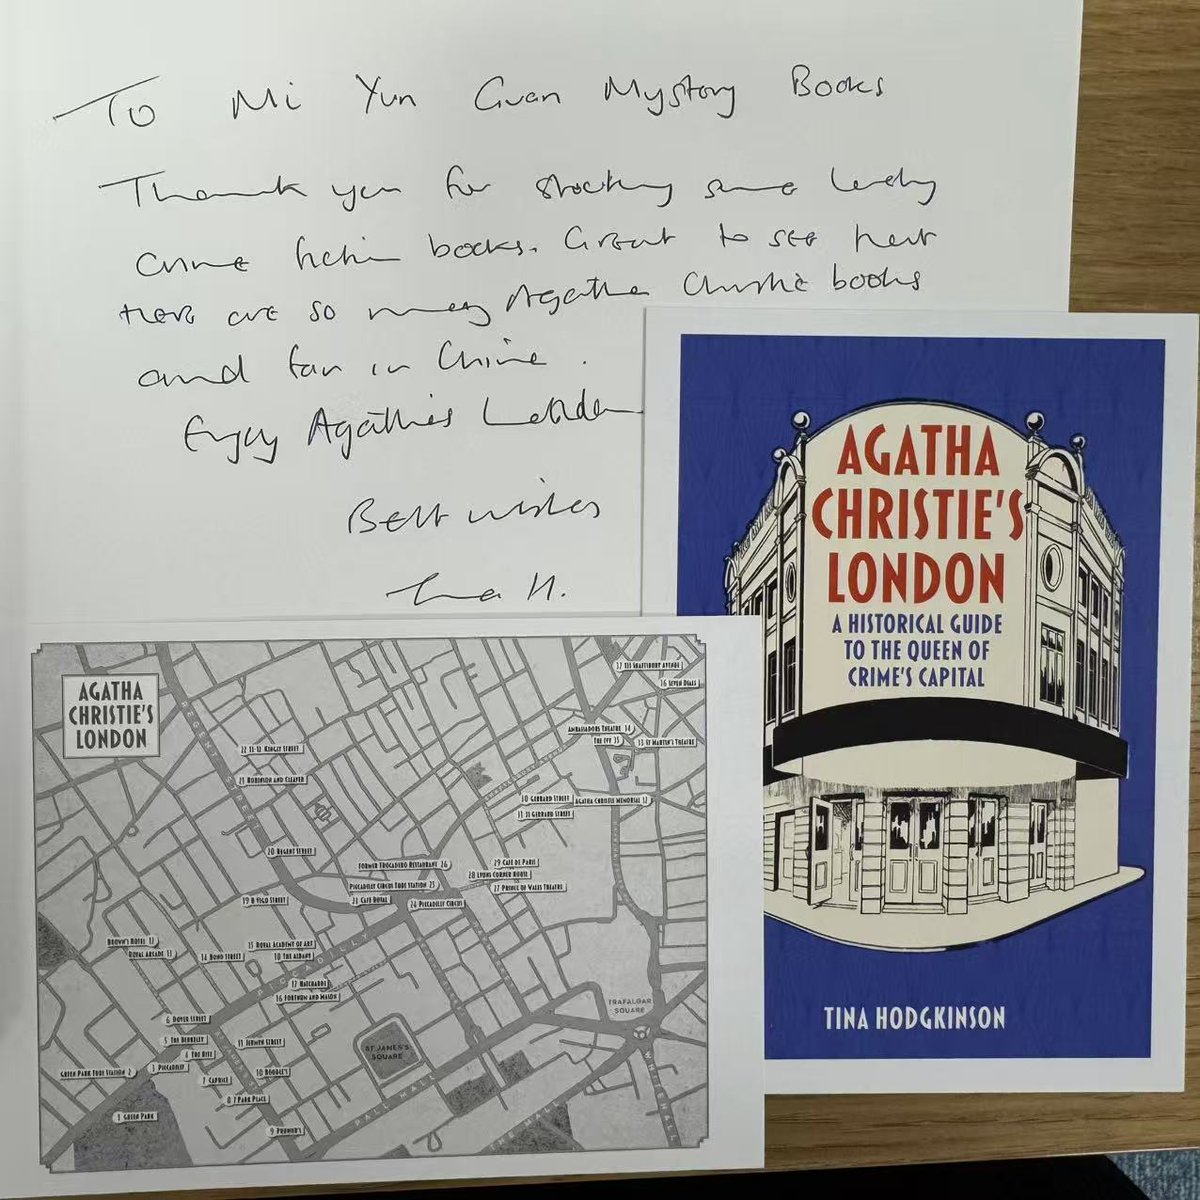 To Mi Yun Guan Mystory Books
Thank you for stocking some lovely
crime fiction books. Great to see that
there are so many Agatha Christie books
and fan in China.
Enjoy Agatha's London
Best wishes
Tina H.
AGATHA
CHRISTIE'S
LONDON
A HISTORICAL GUIDE
TO THE QUEEN OF
CRIME'S CAPITAL
TINA HODGKINSON
AGATHA
CHRISTIE'S
LONDON
37 125 SHAFTESBURY AVENUE
36 SEVEN DIALS
AMBASSADORS THEATRE 34
THE IVY 35
33 ST MARTIN'S THEATRE
22 11-12 KINGLY STREET
21 ROBINSON AND CLEAVER
30 GERRARD STREET
AGATHA CHRISTIE MEMORIAL 32
31 GERRARD STREET
20 REGENT STREET
FORMER TROCADERO RESTAURANT 26
29 CAFE DE PARIS
28 LYONS CORNER HOUSE
PICCADILLY CIRCUS TUBE STATION 25
27 PRINCE OF WALES THEATRE
19 8 VIGO STREET
CAFE ROYAL
24 PICCADILLY CIRCUS
BROWN'S HOTEL 12
15 ROYAL ACADEMY OF ART
ROYAL ARCADE 13
14 BOND STREET
18 THE ALBANY
17 HATCHARDS
16 FORTNUM AND MASON
6 DOVER STREET
5 THE BERKELEY
11 JERMYN STREET
4 THE RITZ
3 PICCADILLY
GREEN PARK TUBE STATION 2
7 CAPRICE
10 BOODLE'S
8 7 PARK PLACE
1 GREEN PARK
9 PRUNIER'S
REGENT STREET
SHAFTESBURY AVENUE
PICCADILLY
TRAFALGAR
SQUARE
ST JAMES'S
SQUARE
PALL MALL
THE MALL
WHITEHALL